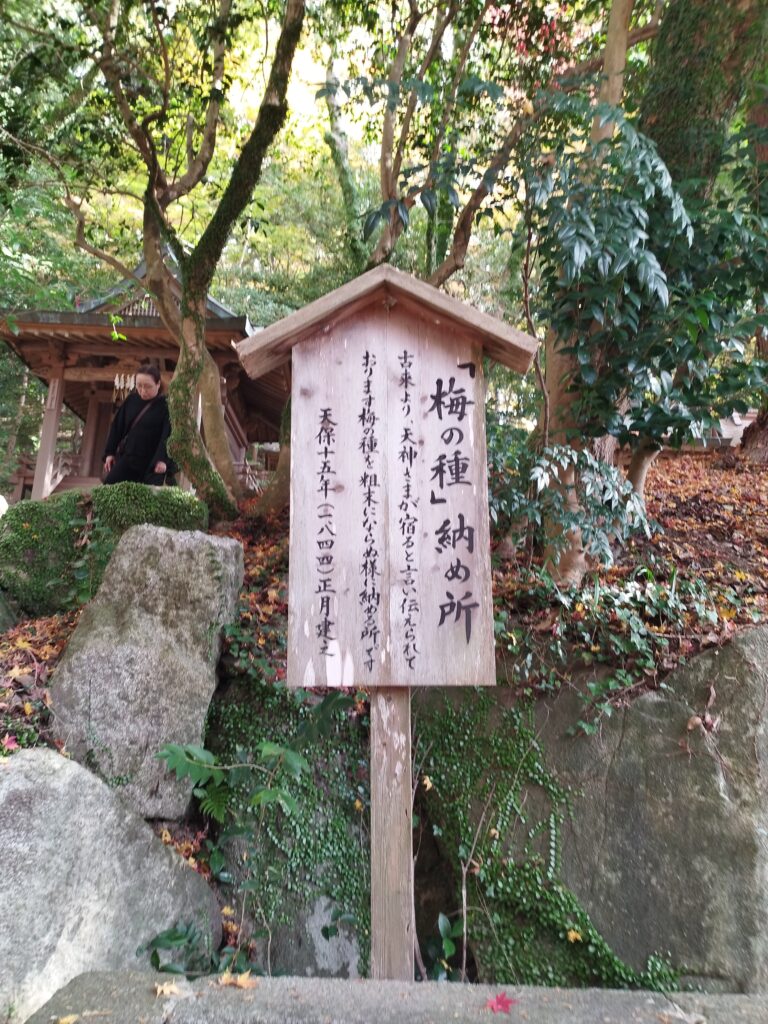 「梅の種」納め所
古来より、天神さまが宿ると言い伝えられて
おります梅の種を粗末にならぬ様に納める所です
天保十五年(一八四四)正月建之